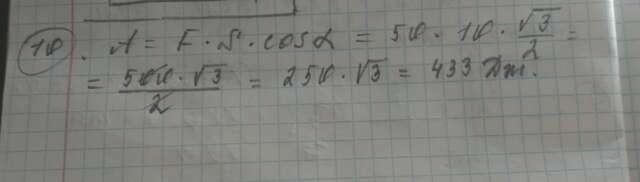 10. A = F · S · cos α = 50 · 10 · √3/2 =
= 500 · √3/2 = 250 · √3 = 433 Дж.